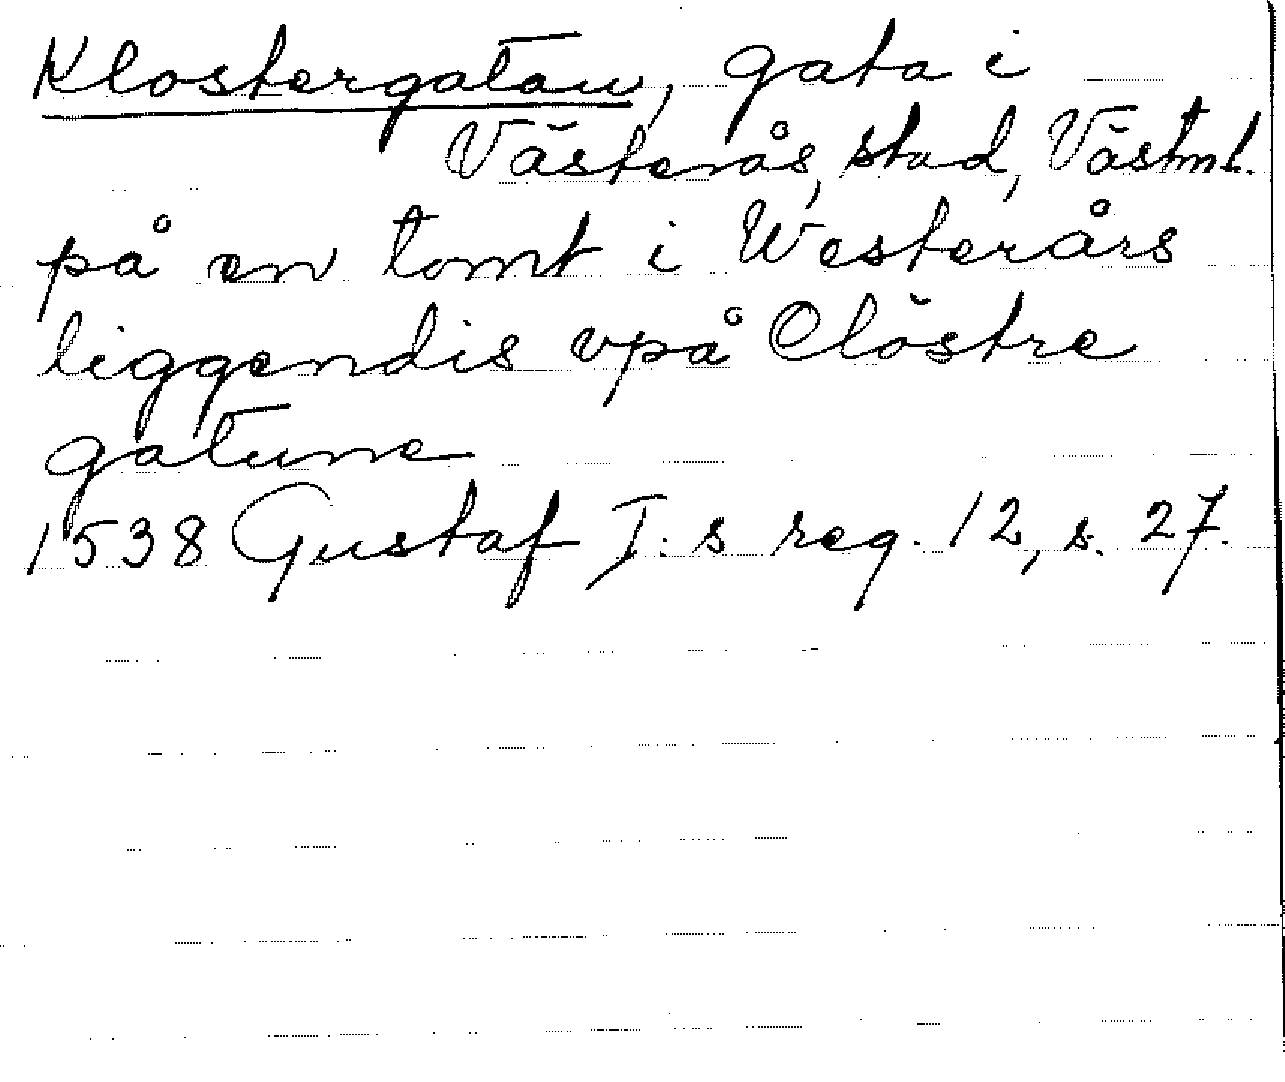 Klostergatan, gata i
Västerås, stad, Västml.
på en tomt i Westerårs
liggendis vpå Clöstre
gatune
1538 Gustaf I:s reg. 12, s. 27.